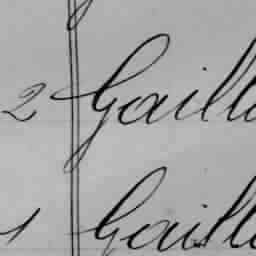 2 Gaill
1 Gaill